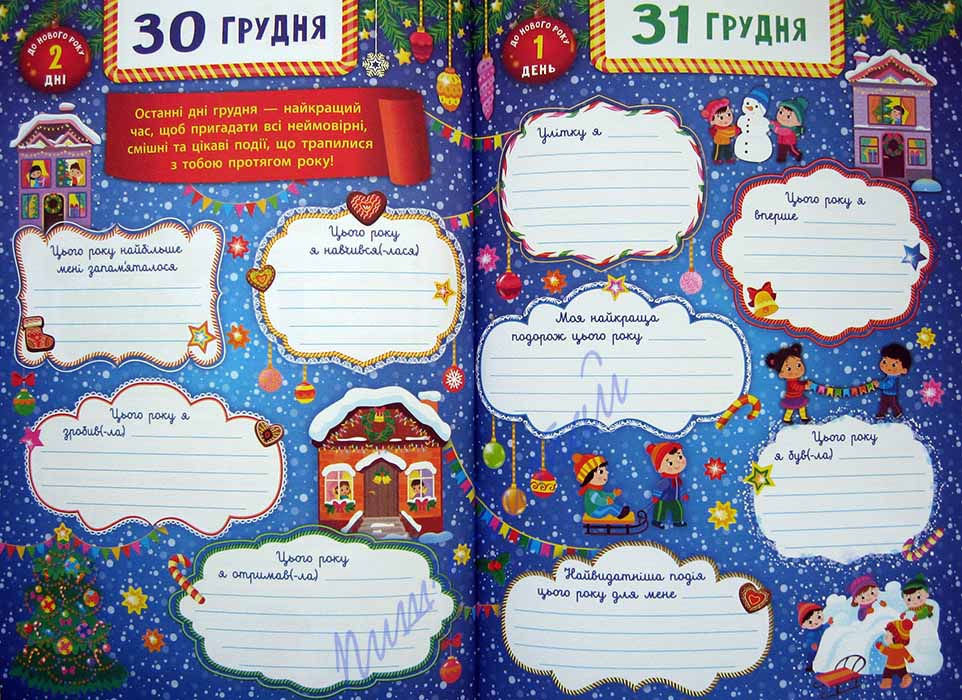 ДО НОВОГО РОКУ
2
ДНІ
30 ГРУДНЯ
Останні дні грудня — найкращий
час, щоб пригадати всі неймовірні,
смішні та цікаві події, що трапилися
з тобою протягом року!
Цього року найбільше
мені запам'яталося
Цього року
я навчився(-лася)
Цього року я
зробив(-ла)
Цього року
я отримав(-ла)
ДО НОВОГО РОКУ
1
ДЕНЬ
31 ГРУДНЯ
Улітку я
Цього року я
вперше
Моя найкраща
подорож цього року
Цього року
я був(-ла)
Найвидатніша подія
цього року для мене